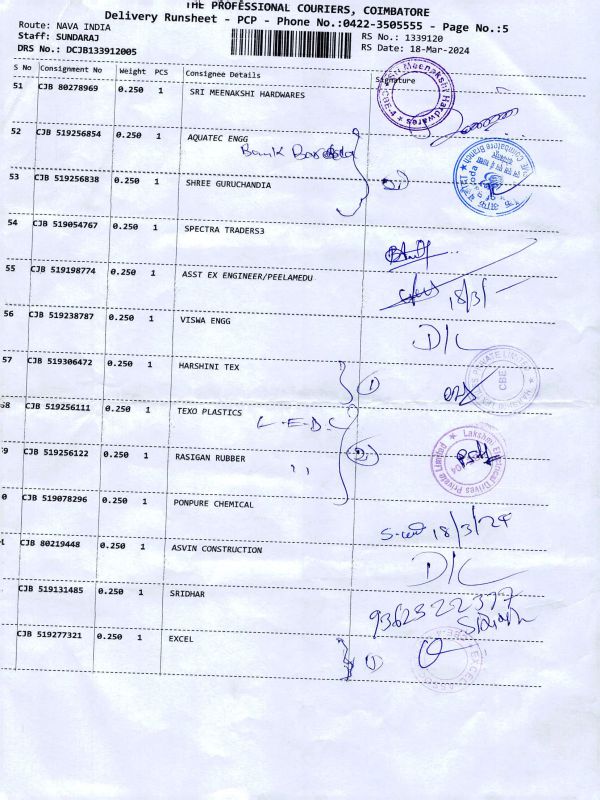 THE PROFESSIONAL COURIERS, COIMBATORE
Delivery Runsheet - PCP - Phone No.:0422-3505555 - Page No.:5
Route: NAVA INDIA
RS No.: 1339120
Staff: SUNDARAJ
RS Date: 18-Mar-2024
DRS No.: DCJB133912005
S No Consignment No Weight PCS Consignee Details Signature
51 CJB 80278969 0.250 1 SRI MEENAKSHI HARDWARES
Sri Meenakshi Hardwares ★ CBE-4
52 CJB 519256854 0.250 1 AQUATEC ENGG
Bank Baroda
Coimbatore Branch
53 CJB 519256838 0.250 1 SHREE GURUCHANDIA
54 CJB 519054767 0.250 1 SPECTRA TRADERS3
55 CJB 519198774 0.250 1 ASST EX ENGINEER/PEELAMEDU
18/3/
56 CJB 519238787 0.250 1 VISWA ENGG
D/C
57 CJB 519306472 0.250 1 HARSHINI TEX
1
PRIVATE LIMITED CBE
58 CJB 519256111 0.250 1 TEXO PLASTICS
L.E.D.C
9 CJB 519256122 0.250 1 RASIGAN RUBBER
2
Lakshmi Electrical Drives Private Limited ★
0 CJB 519078296 0.250 1 PONPURE CHEMICAL
18/3/24
CJB 80219448 0.250 1 ASVIN CONSTRUCTION
D/C
CJB 519131485 0.250 1 SRIDHAR
9362522377
CJB 519277321 0.250 1 EXCEL
1